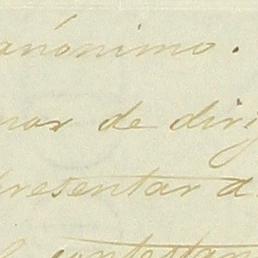 anónimo.
nar de diri
presentar a
contestan